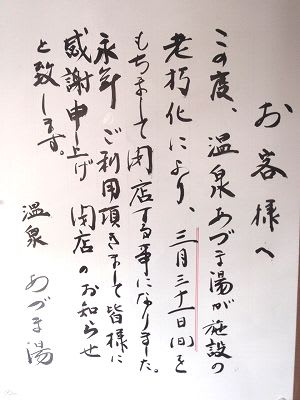 お客様へ
この度、温泉あづま湯が施設の
老朽化により、三月三十一日(日)を
もちまして閉店する事になりました。
永年ご利用頂きまして皆様に
感謝申し上げ 閉店のお知らせ
と致します。
温泉 あづま湯